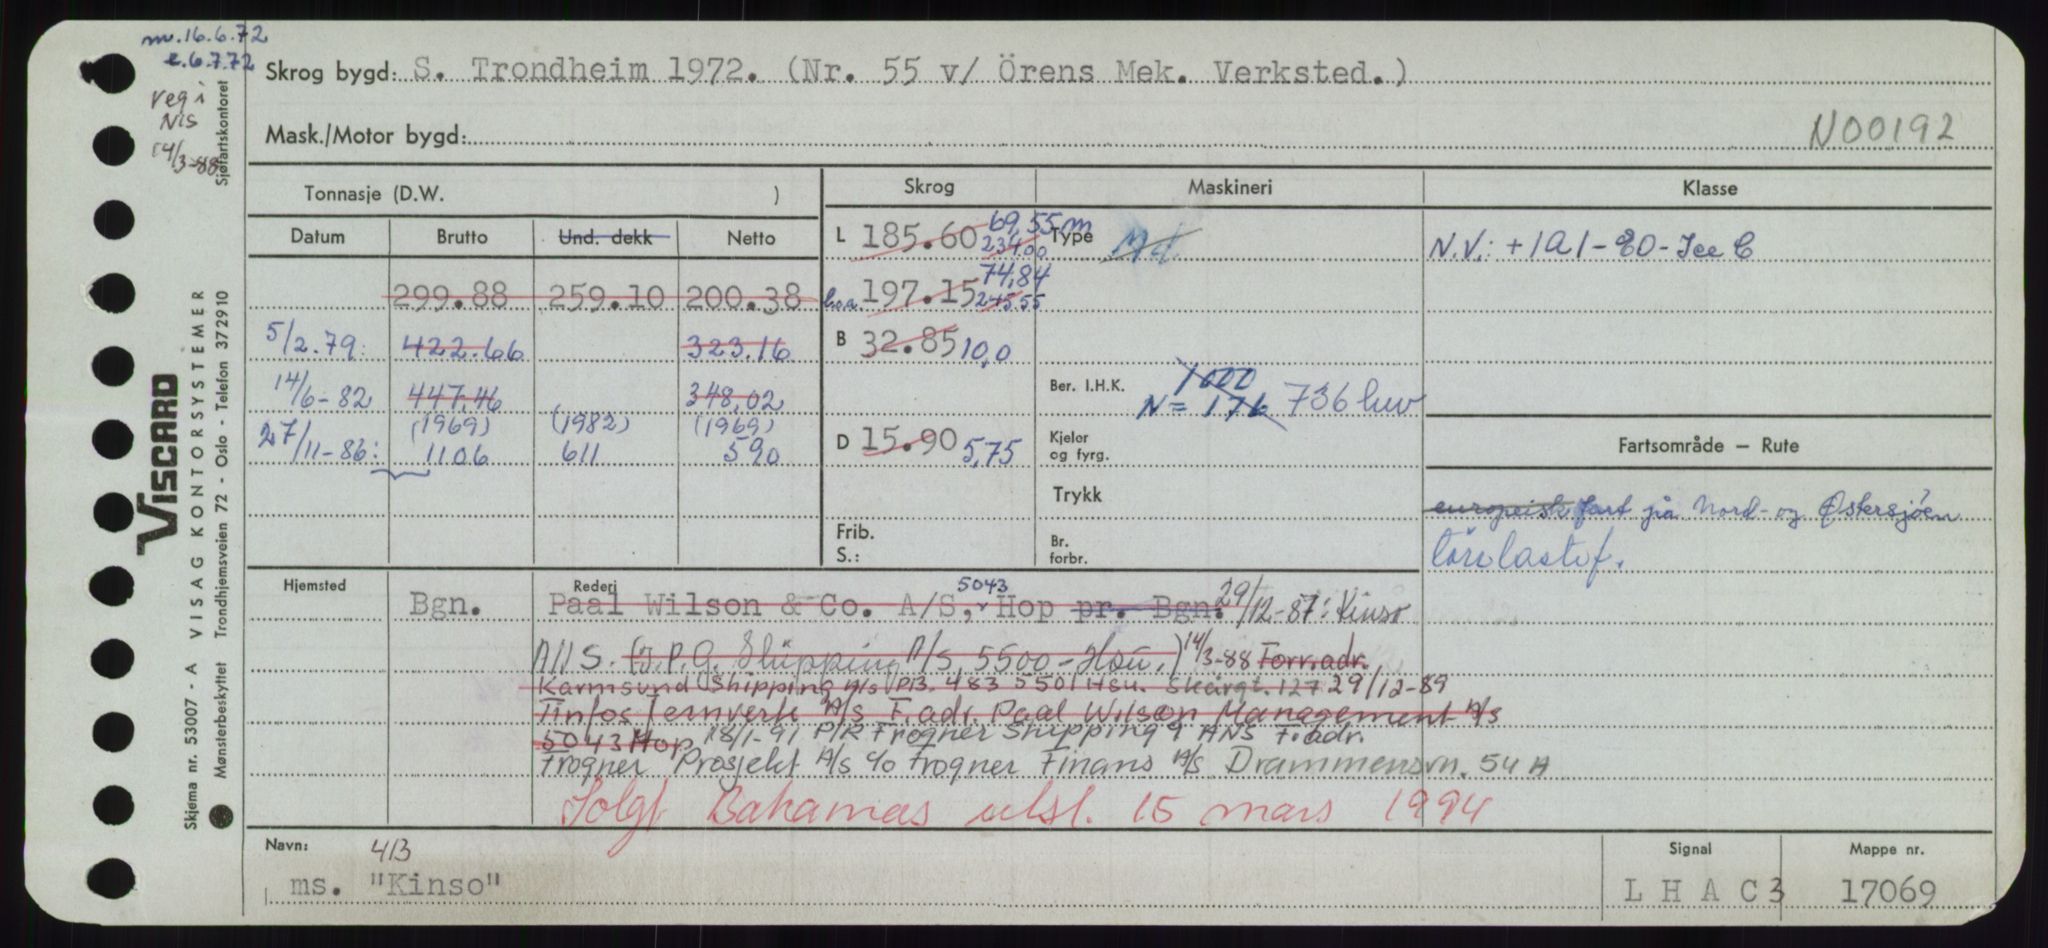 m.16.6.72
e.6.7.72
reg i
NIS
14/3-88
Sjøfartskontoret
VISCARD
VISAG KONTORSYSTEMER
Trondhjemsveien 72 - Oslo - Telefon 372910
Skjema nr. 53007 - A
Mønsterbeskyttet
Skrog bygd: S. Trondheim 1972. (Nr. 55 v/ Örens Mek. Verksted.)
Mask./Motor bygd:
N00192
Tonnasje (D.W. )
Datum Brutto Und. dekk Netto
299.88 259.10 200.38
5/2.79. 422.66 323.16
14/6-82 447,46 348,02
(1969) (1982) (1969)
27/11-86: 1106 611 590
Skrog
L 185.60 69,55 m
234.00
l.o.a. 197.15 74,84
245.55
B 32.85 10,0
D 15.90 5,75
Frib.
S.:
Maskineri
Type Mt.
Ber. I.H.K. 1000
N = 176 736 kw
Kjeler
og fyrg.
Trykk
Br.
forbr.
Klasse
N.V.: + 1A1 - E0 - Ice C
Fartsområde — Rute
europeisk fart på Nord- og Østersjøen
tørrlastsf.
Hjemsted Rederi
Bgn. Paal Wilson & Co. A/S, 5043 Hop pr. Bgn. 29/12-87: Kinso
A/S. (J.P.G. Shipping A/S, 5500 - Hau.) 14/3-88 Forr.adr.
Karmsund Shipping A/S PB. 483 5501 Hsu. Skårgt. 127 29/12-89
Tinfos Jernverk A/S F.adr. Paal Wilson Management A/S
5043 Hop 18/1-91 P/R Frogner Shipping 9 ANS F.adr.
Frogner Prosjekt A/S c/o Frogner Finans A/S Drammensvn. 54 A
Solgt Bahamas utsl. 15 mars 1994
Navn: 413
ms. "Kinso"
Signal
L H A C 3
Mappe nr.
17069